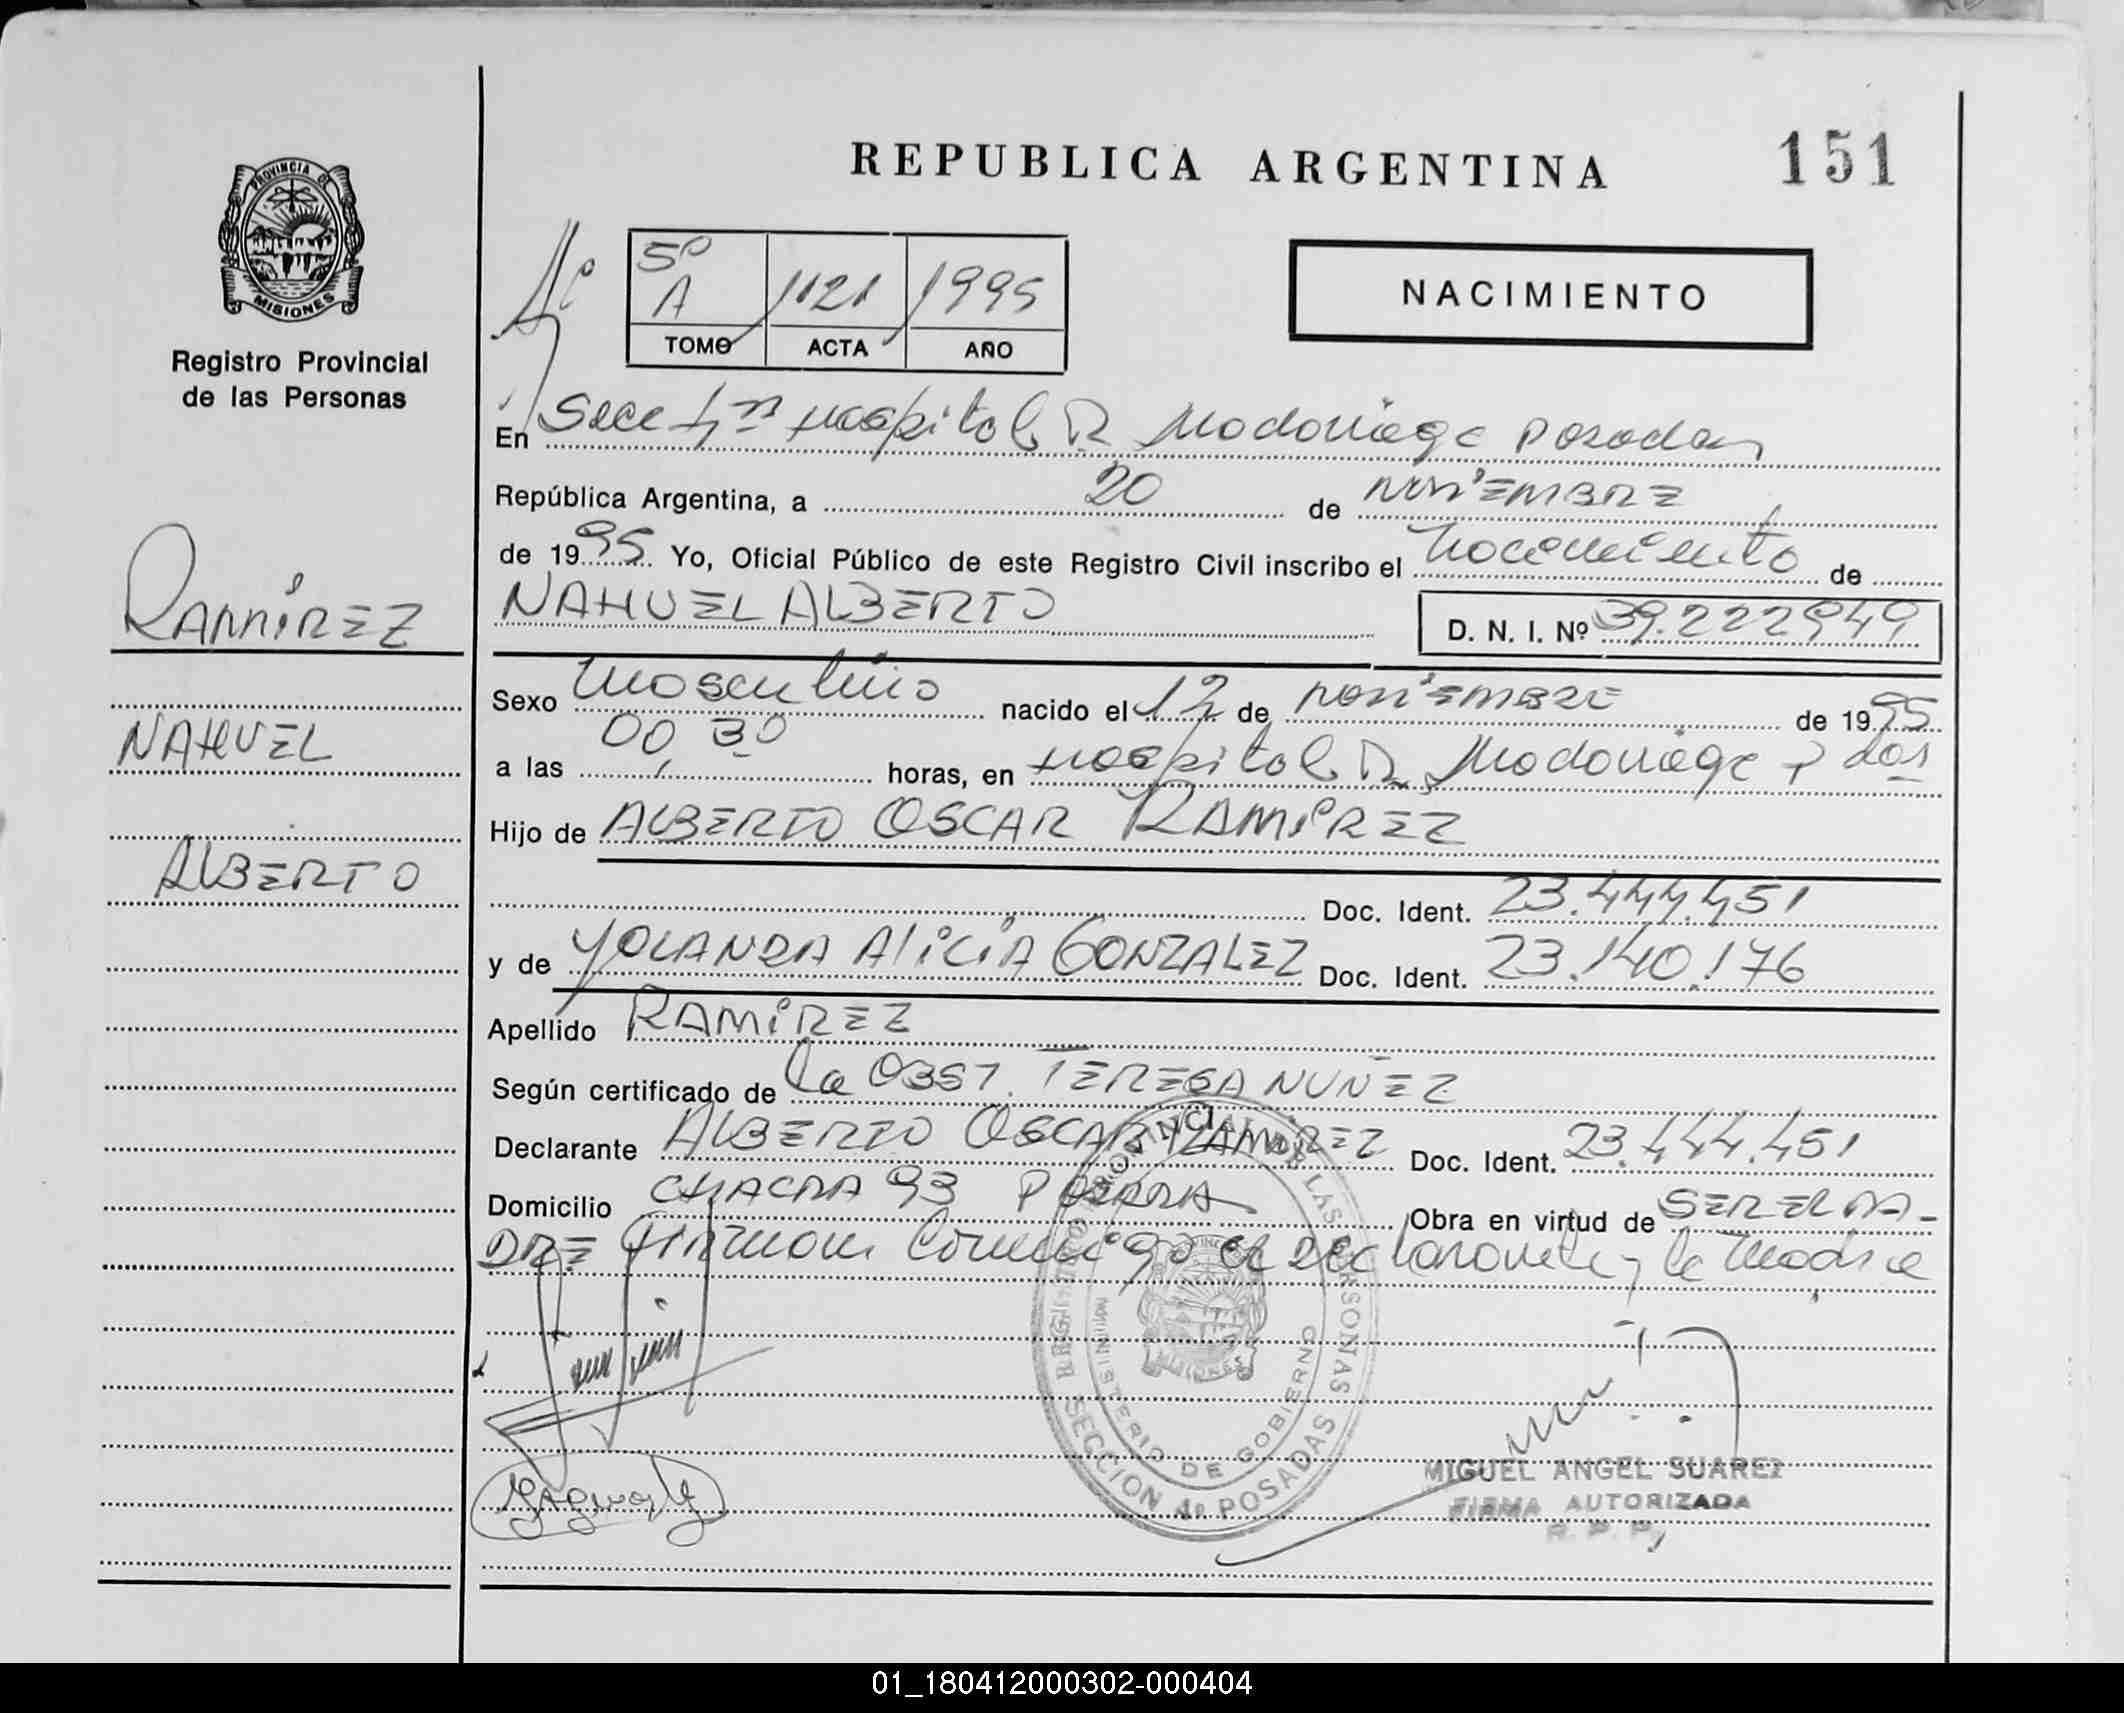 REPUBLICA ARGENTINA
151
PROVINCIA DE
MISIONES
Registro Provincial
de las Personas
5º
A
1121
1995
TOMO
ACTA
AÑO
NACIMIENTO
En Secc 4ª Hospital R Madariaga Posadas
República Argentina, a 20 de noviembre
de 1995 Yo, Oficial Público de este Registro Civil inscribo el nacimiento de
NAHUEL ALBERTO
D. N. I. Nº 39.222949
RAMIREZ
NAHUEL
ALBERTO
Sexo masculino nacido el 12 de noviembre de 1995
a las 00,30 horas, en Hospital R Madariaga P das
Hijo de ALBERTO OSCAR RAMIREZ
Doc. Ident. 23.444.451
y de YOLANDA ALICIA GONZALEZ Doc. Ident. 23.140.176
Apellido RAMIREZ
Según certificado de La OBST. TERESA NUÑEZ
Declarante ALBERTO OSCAR RAMIREZ Doc. Ident. 23.444.451
Domicilio CHACRA 93 Obra en virtud de SER EL PA-
DRE Firman conmigo el declarante y la madre
REGISTRO PROVINCIAL DE LAS PERSONAS
MINISTERIO DE GOBIERNO
SECCION 4º POSADAS
MIGUEL ANGEL SUAREZ
FIRMA AUTORIZADA
R. P. P.
01_180412000302-000404